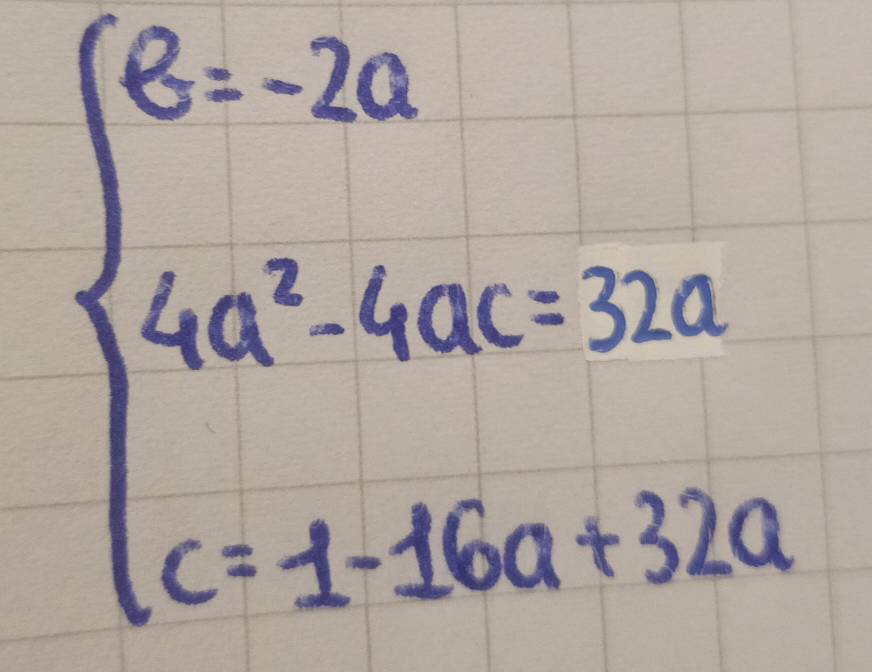 b = -2a
4a² - 4ac = 32a
c = 1 - 16a + 32a